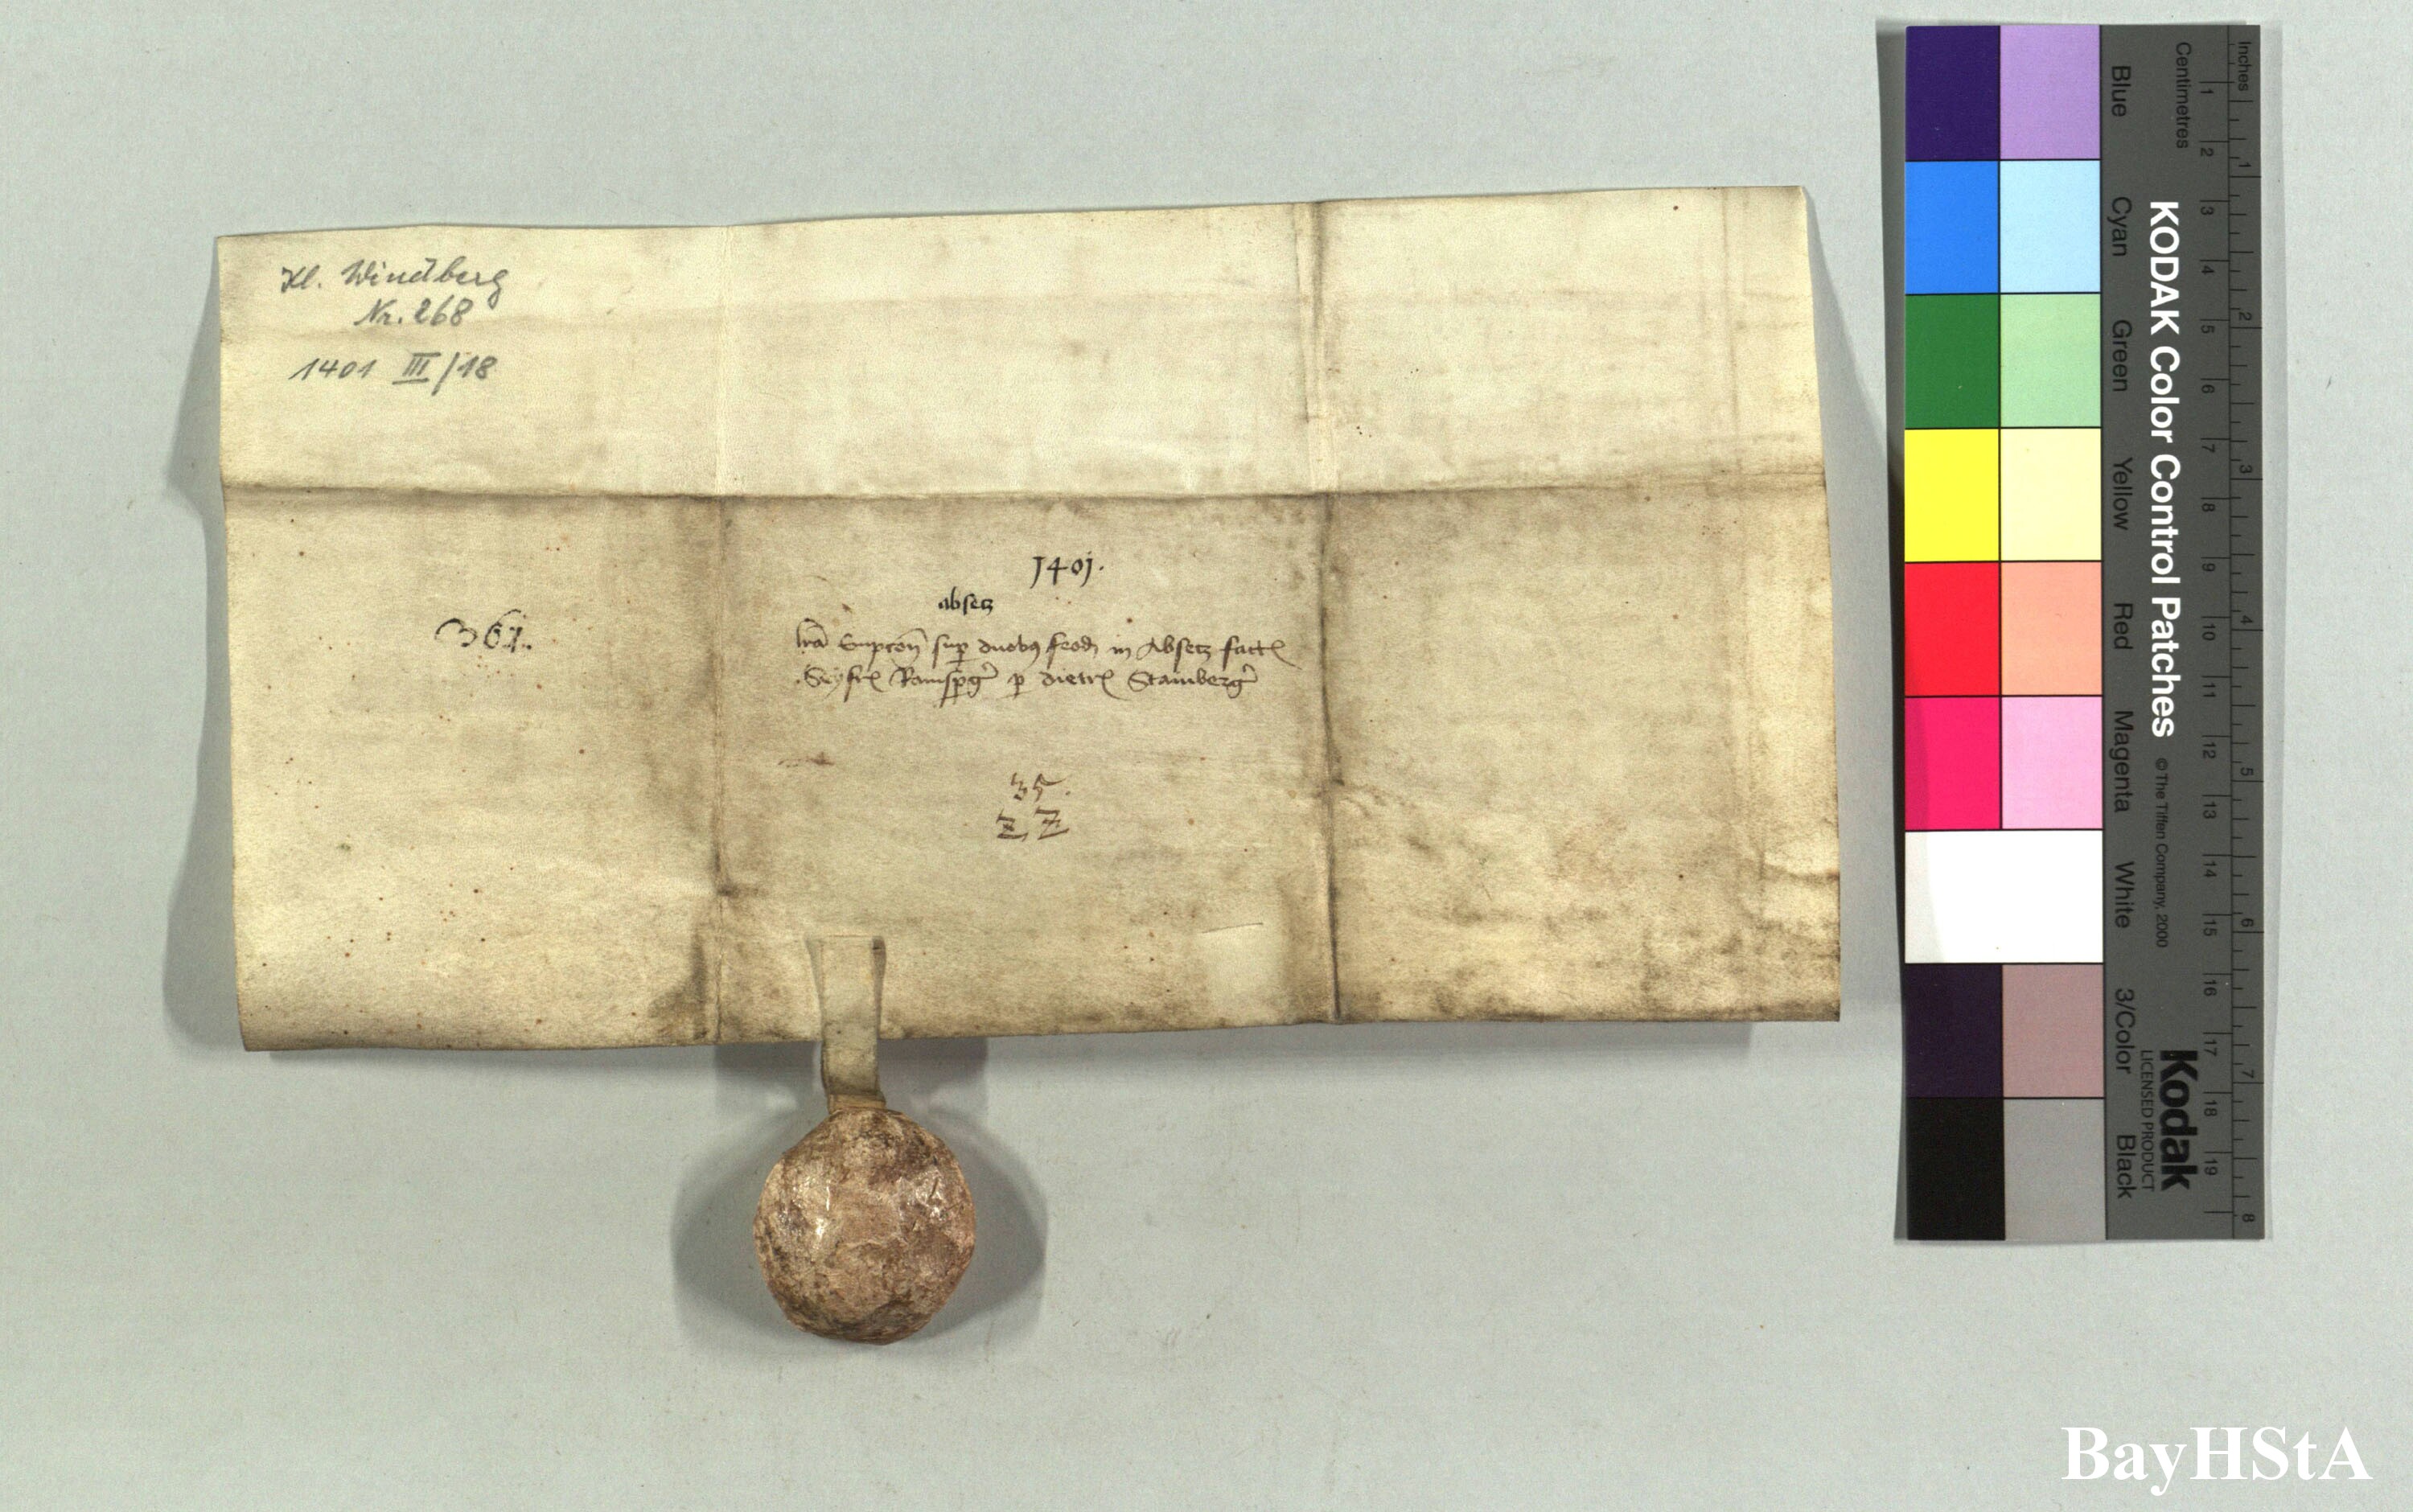 Kl. Windberg
Nr. 268
1401 III/18
1401.
absetz
361.
lra empcon sup duob9 feod in Absetz fact
Seyfr Ramspger p dietr Stainberger
35.
ZZ
Inches
Centimetres
1 2 3 4 5 6 7 8 9 10 11 12 13 14 15 16 17 18 19
1 2 3 4 5 6 7 8
Blue Cyan Green Yellow Red Magenta White 3/Color Black
KODAK Color Control Patches © The Tiffen Company, 2000
Kodak
LICENSED PRODUCT
BayHStA